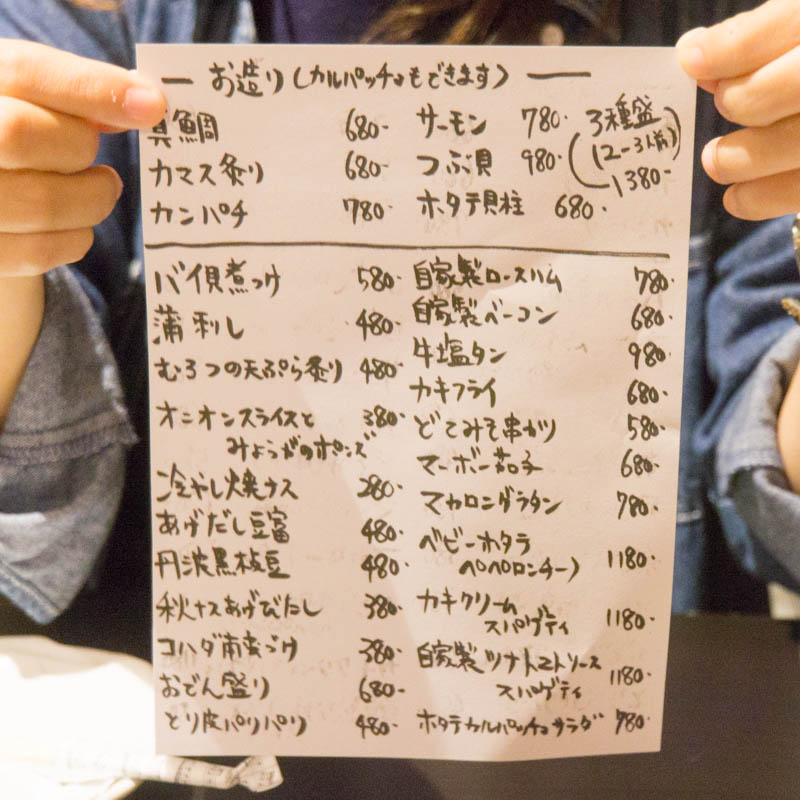 ― お造り(カルパッチョもできます) ―
真鯛 680-
カマス炙り 680-
カンパチ 780-
サーモン 780-
つぶ貝 980-
ホタテ貝柱 680-
3種盛
(2-3人前)
1380-
バイ貝煮つけ 580-
蒲刺し 480-
むろつの天ぷら炙り 480-
オニオンスライスと 380-
みょうがのポンズ
冷やし焼ナス 280-
あげだし豆富 480-
丹波黒枝豆 480-
秋ナスあげびたし 380-
コハダ南蛮づけ 380-
おでん盛り 680-
とり皮パリパリ 480-
自家製ロースハム 780-
自家製ベーコン 680-
牛塩タン 980-
カキフライ 680-
どてみそ串かつ 580-
マーボー茄子 680-
マカロニグラタン 780-
ベビーホタテ
ペペロンチーノ 1180-
カキクリーム
スパゲティ 1180-
自家製ツナトマトソース
スパゲティ 1180-
ホタテカルパッチョサラダ 780-